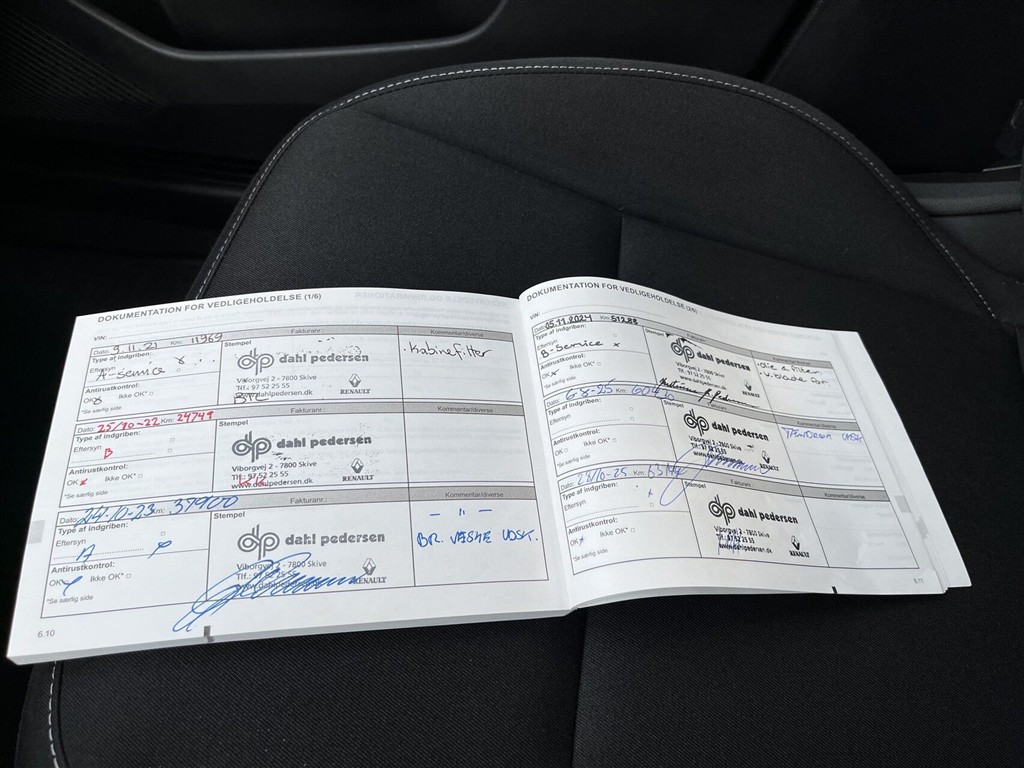 DOKUMENTATION FOR VEDLIGEHOLDELSE (1/6)
VIN:
Dato: 9.11.21 Km: 11969 Fakturanr.: Kommentar/diverse
Type af indgriben: Stempel
Eftersyn
A-service
dp dahl pedersen
Kabinefilter
Antirustkontrol:
OK Ikke OK*
*Se særlig side
Viborgvej 2 - 7800 Skive
Tlf.: 97 52 25 55
www.dahlpedersen.dk
RENAULT
Dato: 25/10-22 Km: 24749 Fakturanr.: Kommentar/diverse
Type af indgriben: Stempel
Eftersyn
B
dp dahl pedersen
Antirustkontrol:
OK x Ikke OK*
*Se særlig side
Viborgvej 2 - 7800 Skive
Tlf.: 97 52 25 55
www.dahlpedersen.dk
RENAULT
Dato: 24-10-23 Km: 37900 Fakturanr.: Kommentar/diverse
Type af indgriben: Stempel
Eftersyn
A
dp dahl pedersen
— " —
BR. VÆSKE UDSK.
Antirustkontrol:
OK Ikke OK*
*Se særlig side
Viborgvej 2 - 7800 Skive
Tlf.: 97 52 25 55
www.dahlpedersen.dk
RENAULT
6.10
DOKUMENTATION FOR VEDLIGEHOLDELSE (2/6)
VIN:
Dato: 05.11.2024 Km: 51288 Fakturanr.: Kommentar/diverse
Type af indgriben: Stempel
Eftersyn
B-Service x
dp dahl pedersen
Antirustkontrol:
OK x Ikke OK*
*Se særlig side
Viborgvej 2 - 7800 Skive
Tlf.: 97 52 25 55
www.dahlpedersen.dk
Dato: 6-8-25 Km: Fakturanr.: Kommentar/diverse
Type af indgriben: Stempel
Eftersyn
dp dahl pedersen
Antirustkontrol:
OK Ikke OK*
*Se særlig side
Viborgvej 2 - 7800 Skive
Tlf.: 97 52 25 55
www.dahlpedersen.dk
Km: Fakturanr.: Kommentar/diverse
Type af indgriben: Stempel
Eftersyn
dp dahl pedersen
Antirustkontrol:
OK Ikke OK*
*Se særlig side
Viborgvej 2 - 7800 Skive
Tlf.: 97 52 25 55
www.dahlpedersen.dk
RENAULT
6.11